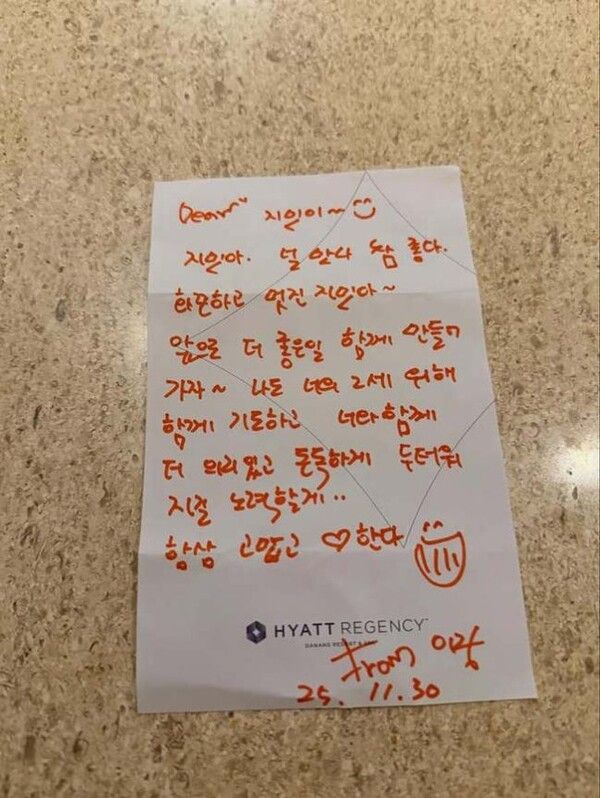 Dear~ 지인이~
지인아. 널 만나 참 좋다.
화끈하고 멋진 지인아~
앞으로 더 좋은일 함께 만들어
가자~ 나도 너의 2세 위해
함께 기도하고 너와함께
더 의리있고 돈독하게 두터워
지길 노력할게..
항상 고맙고 ♡한다
HYATT REGENCY™
DANANG RESORT &
From
25. 11.30